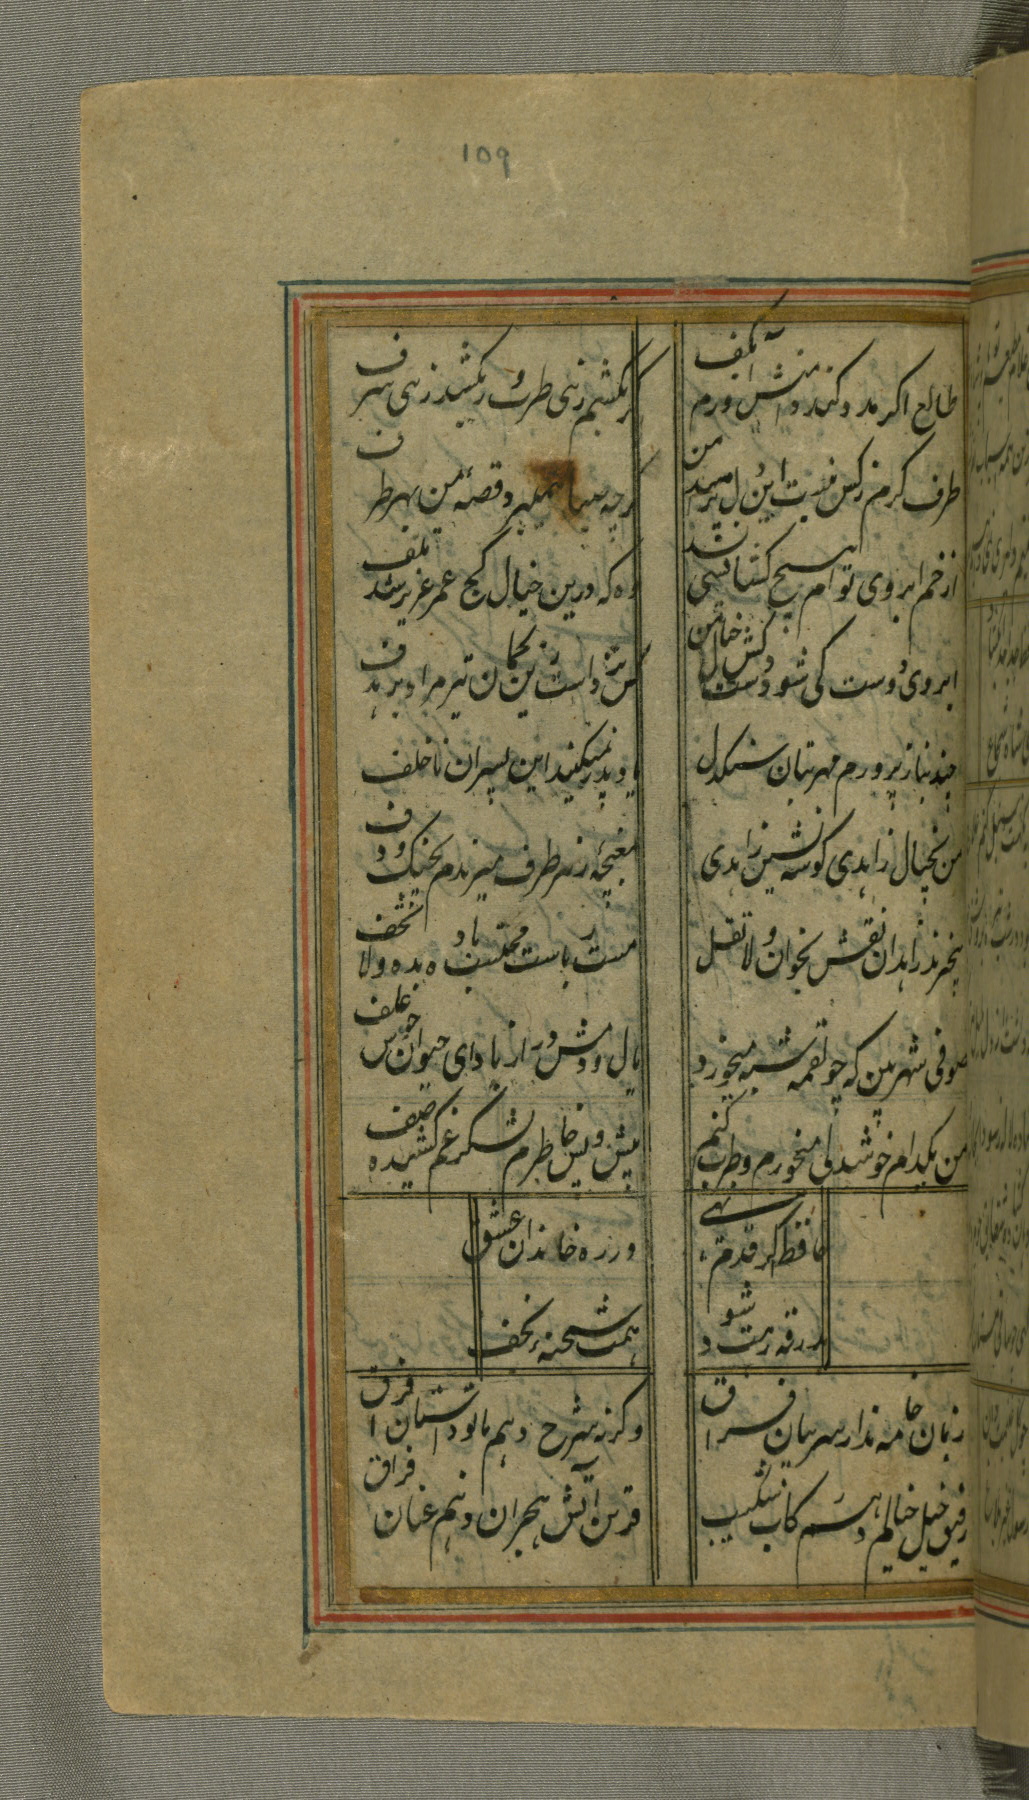 109
طالع اگر مدد کند دامنش آورم بکف
گر بکشم زهی طرب ور بکشد زهی شرف
طرف کرم ز کس نبست این دل پر امید من
گرچه سخن همی برد قصهٔ من بهر طرف
از خم ابروی توام هیچ گشایشی نشد
وه که درین خیال کج عمر عزیز شد تلف
ابروی دوست کی شود دستکش خیال من
کس نزداست زین کمان تیر مراد بر هدف
چند بناز پرورم مهر بتان سنگدل
یاد پدر نمیکنند این پسران ناخلف
من بخیال زاهدی گوشه نشین زاهدی
مغبچهٔ ز هر طرف میزندم بچنگ و دف
بیخبرند زاهدان نقش بخوان و لا تقل
مست ریاست محتسب باده بده و لا تخف
صوفی شهر بین که چو لقمه شبهه میخورد
یال و دمش دراز باد ای حیوان خوش علف
من بکدام خوشدلی میخورم و طرب کنم
پیش و پس خاطرم لشکر غم کشیده صف
حافظ اگر قدم نهی
در ره خاندان عشق
بدرقه رهت شود
همت شحنهٔ نجف
زبان خامه ندارد سر بیان فراق
وگرنه شرح دهم با تو داستان فراق
رفیق خیل خیالیم و همرکاب شکیب
قرین آتش هجران و هم عنان فراق